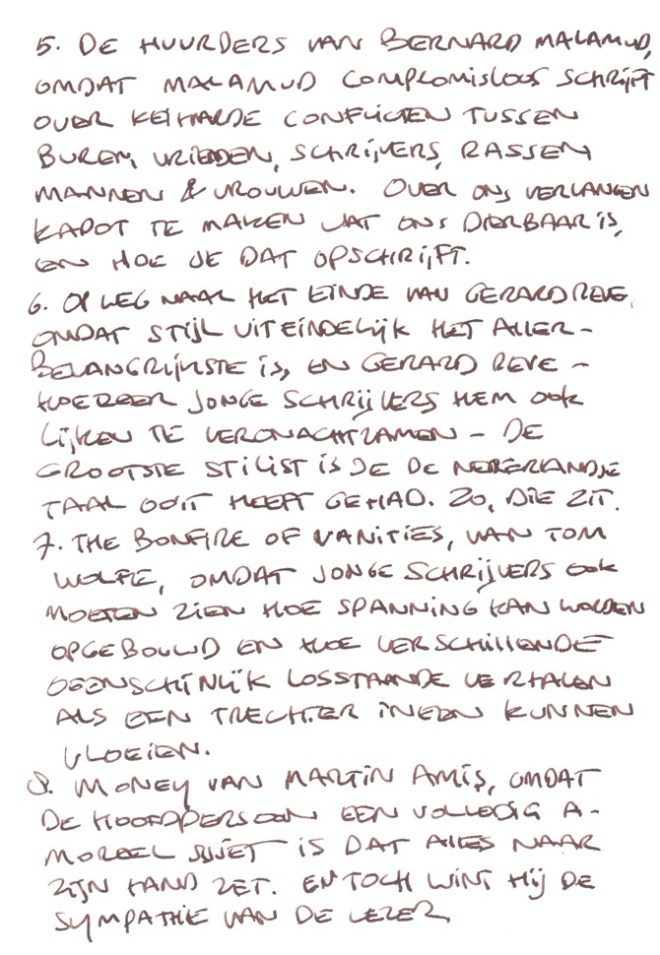 5. DE HUURDERS VAN BERNARD MALAMUD,
OMDAT MALAMUD COMPROMISLOOS SCHRIJFT
OVER KEIHARDE CONFLICTEN TUSSEN
BUREN, VRIENDEN, SCHRIJVERS, RASSEN
MANNEN & VROUWEN. OVER ONS VERLANGEN
KAPOT TE MAKEN WAT ONS DIERBAAR IS,
EN HOE JE DAT OPSCHRIJFT.
6. OP WEG NAAR HET EINDE VAN GERARD REVE,
OMDAT STIJL UITEINDELIJK HET ALLER-
BELANGRIJKSTE IS, EN GERARD REVE -
HOEZEER JONGE SCHRIJVERS HEM OOK
LIJKEN TE VERONACHTZAMEN - DE
GROOTSTE STILIST IS DE DE NEDERLANDSE
TAAL OOIT HEEFT GEHAD. ZO, DIE ZIT.
7. THE BONFIRE OF VANITIES, VAN TOM
WOLFE, OMDAT JONGE SCHRIJVERS OOK
MOETEN ZIEN HOE SPANNING KAN WORDEN
OPGEBOUWD EN HOE VERSCHILLENDE
OGENSCHIJNLIJK LOSSTAANDE VERHALEN
ALS EEN TRECHTER INEEN KUNNEN
VLOEIEN.
8. MONEY VAN MARTIN AMIS, OMDAT
DE HOOFDPERSOON EEN VOLLEDIG A-
MOREEL SUJET IS DAT ALLES NAAR
ZIJN HAND ZET. EN TOCH WINT HIJ DE
SYMPATHIE VAN DE LEZER.